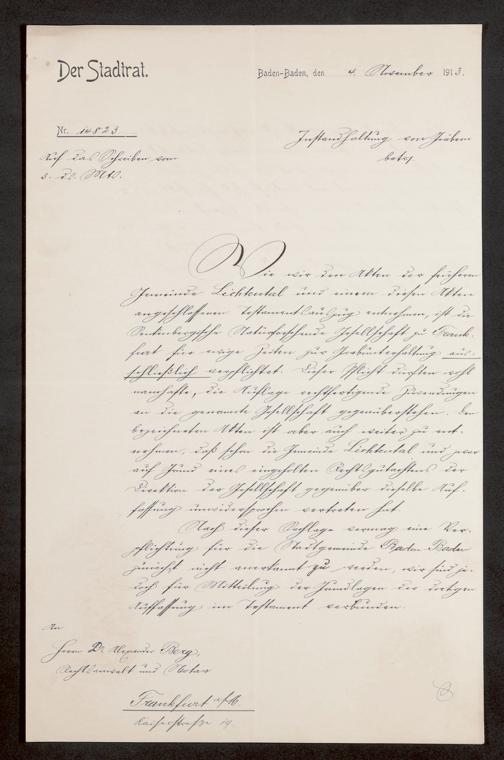 Der Stadtrat.
Baden-Baden, den 4. November 1913.
Nr. 14823
Instandhaltung von Gräbern
betr.
Auf das Schreiben vom
3. ds. Mts.
Wie wir den Akten der früheren
Gemeinde Lichtental und einem diesen Akten
angeschlossenen Testamentsauszug entnehmen, ist die
Senkenbergische Naturforschende Gesellschaft zu Frank-
furt für ewige Zeiten zur Gräberunterhaltung aus-
schließlich verpflichtet. Dieser Pflicht dürften wohl
namhafte, die Auflage rechtfertigende Zuwendungen
an die genannte Gesellschaft gegenüberstehen. Den
bezeichneten Akten ist aber auch weiter zu ent-
nehmen, daß schon die Gemeinde Lichtental und zwar
auf Grund eines eingeholten Rechtsgutachtens der
Direktion der Gesellschaft gegenüber dieselbe Auf-
fassung unwidersprochen vertreten hat.
Nach dieser Sachlage vermag eine Ver-
pflichtung für die Stadtgemeinde Baden-Baden
zunächst nicht anerkannt zu werden, wir sind je-
doch für Mitteilung der Grundlagen der dortigen
Auffassung im Testament verbunden.
An
Herrn Dr. Alexander Berg,
Rechtsanwalt und Notar
Frankfurt a/M.
Kaiserstraße 19.